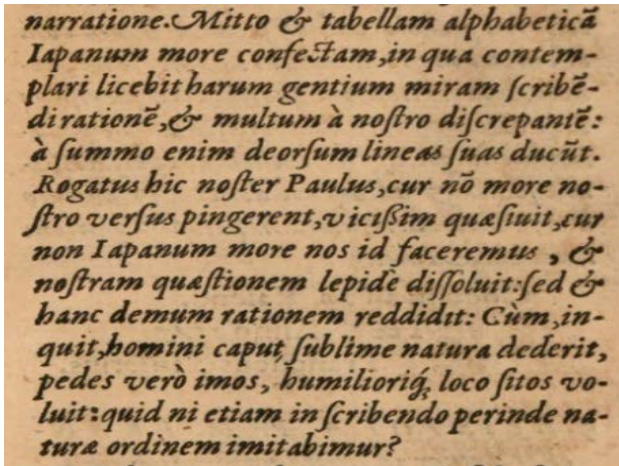 narratione. Mitto & tabellam alphabeticā
Iapanum more confectam, in qua contem-
plari licebit harum gentium miram ſcribē-
di rationē, & multum à noſtro diſcrepantē:
à ſummo enim deorſum lineas ſuas ducūt.
Rogatus hic noſter Paulus, cur nō more no-
ſtro verſus pingerent, viciſsim quæſiuit, cur
non Iapanum more nos id faceremus, &
noſtram quæſtionem lepidè diſſoluit: ſed &
hanc demum rationem reddidit: Cùm, in-
quit, homini caput ſublime natura dederit,
pedes verò imos, humilioriq́; loco ſitos vo-
luit: quid ni etiam in ſcribendo perinde na-
turæ ordinem imitabimur?